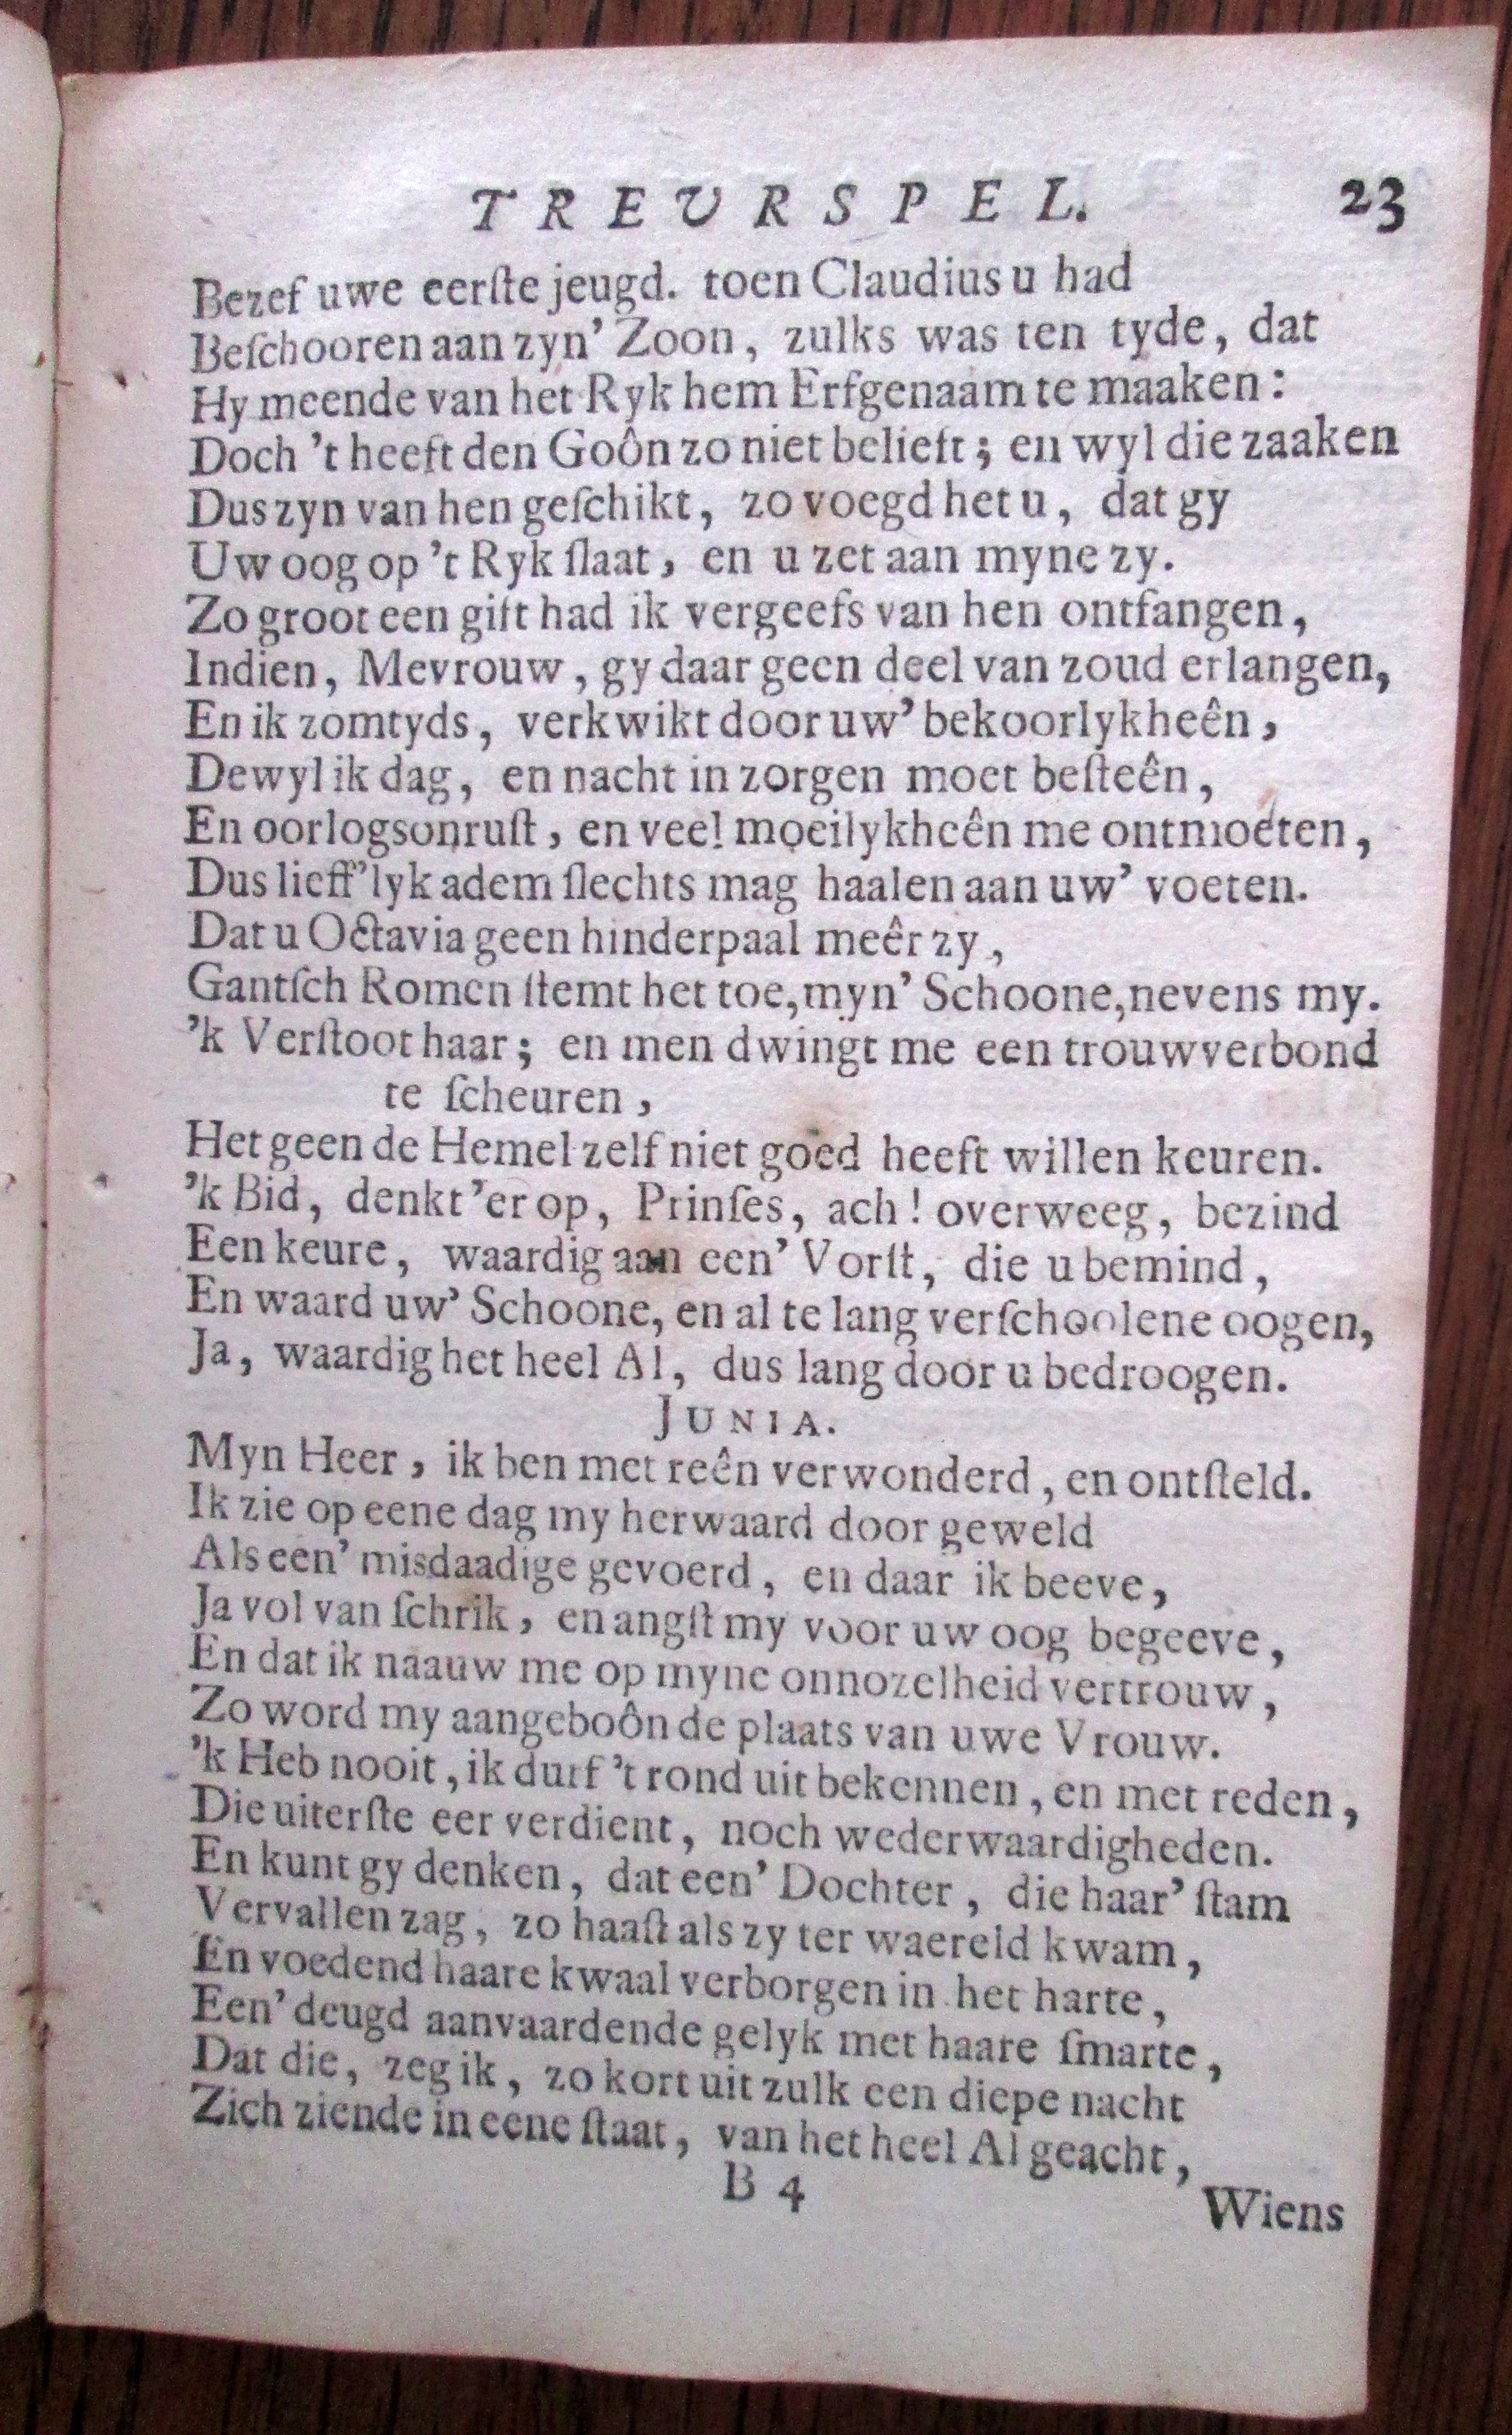 TREURSPEL. 23
Bezef uwe eerſte jeugd. toen Claudius u had
Beſchooren aan zyn’ Zoon, zulks was ten tyde, dat
Hy meende van het Ryk hem Erfgenaam te maaken:
Doch ’t heeft den Goôn zo niet belieft; en wyl die zaaken
Dus zyn van hen geſchikt, zo voegd het u, dat gy
Uw oog op ’t Ryk ſlaat, en u zet aan myne zy.
Zo groot een gift had ik vergeefs van hen ontfangen,
Indien, Mevrouw, gy daar geen deel van zoud erlangen,
En ik zomtyds, verkwikt door uw’ bekoorlykheên,
Dewyl ik dag, en nacht in zorgen moet beſteên,
En oorlogsonruſt, en veel moeilykheên me ontmoeten,
Dus lieff’lyk adem ſlechts mag haalen aan uw’ voeten.
Dat u Octavia geen hinderpaal meêr zy,
Gantſch Romen ſtemt het toe, myn’ Schoone, nevens my.
’k Verſtoot haar; en men dwingt me een trouwverbond
te ſcheuren,
Het geen de Hemel zelf niet goed heeft willen keuren.
’k Bid, denkt ’er op, Prinſes, ach! overweeg, bezind
Een keure, waardig aan een’ Vorſt, die u bemind,
En waard uw’ Schoone, en al te lang verſchoolene oogen,
Ja, waardig het heel Al, dus lang door u bedroogen.
JUNIA.
Myn Heer, ik ben met reên verwonderd, en ontſteld.
Ik zie op eene dag my herwaard door geweld
Als een’ misdaadige gevoerd, en daar ik beeve,
Ja vol van ſchrik, en angſt my voor uw oog begeeve,
En dat ik naauw me op myne onnozelheid vertrouw,
Zo word my aangeboôn de plaats van uwe Vrouw.
’k Heb nooit, ik durf ’t rond uit bekennen, en met reden,
Die uiterſte eer verdient, noch wederwaardigheden.
En kunt gy denken, dat een’ Dochter, die haar’ ſtam
Vervallen zag, zo haaſt als zy ter waereld kwam,
En voedend haare kwaal verborgen in het harte,
Een’ deugd aanvaardende gelyk met haare ſmarte,
Dat die, zeg ik, zo kort uit zulk een diepe nacht
Zich ziende in eene ſtaat, van het heel Al geacht,
B 4
Wiens